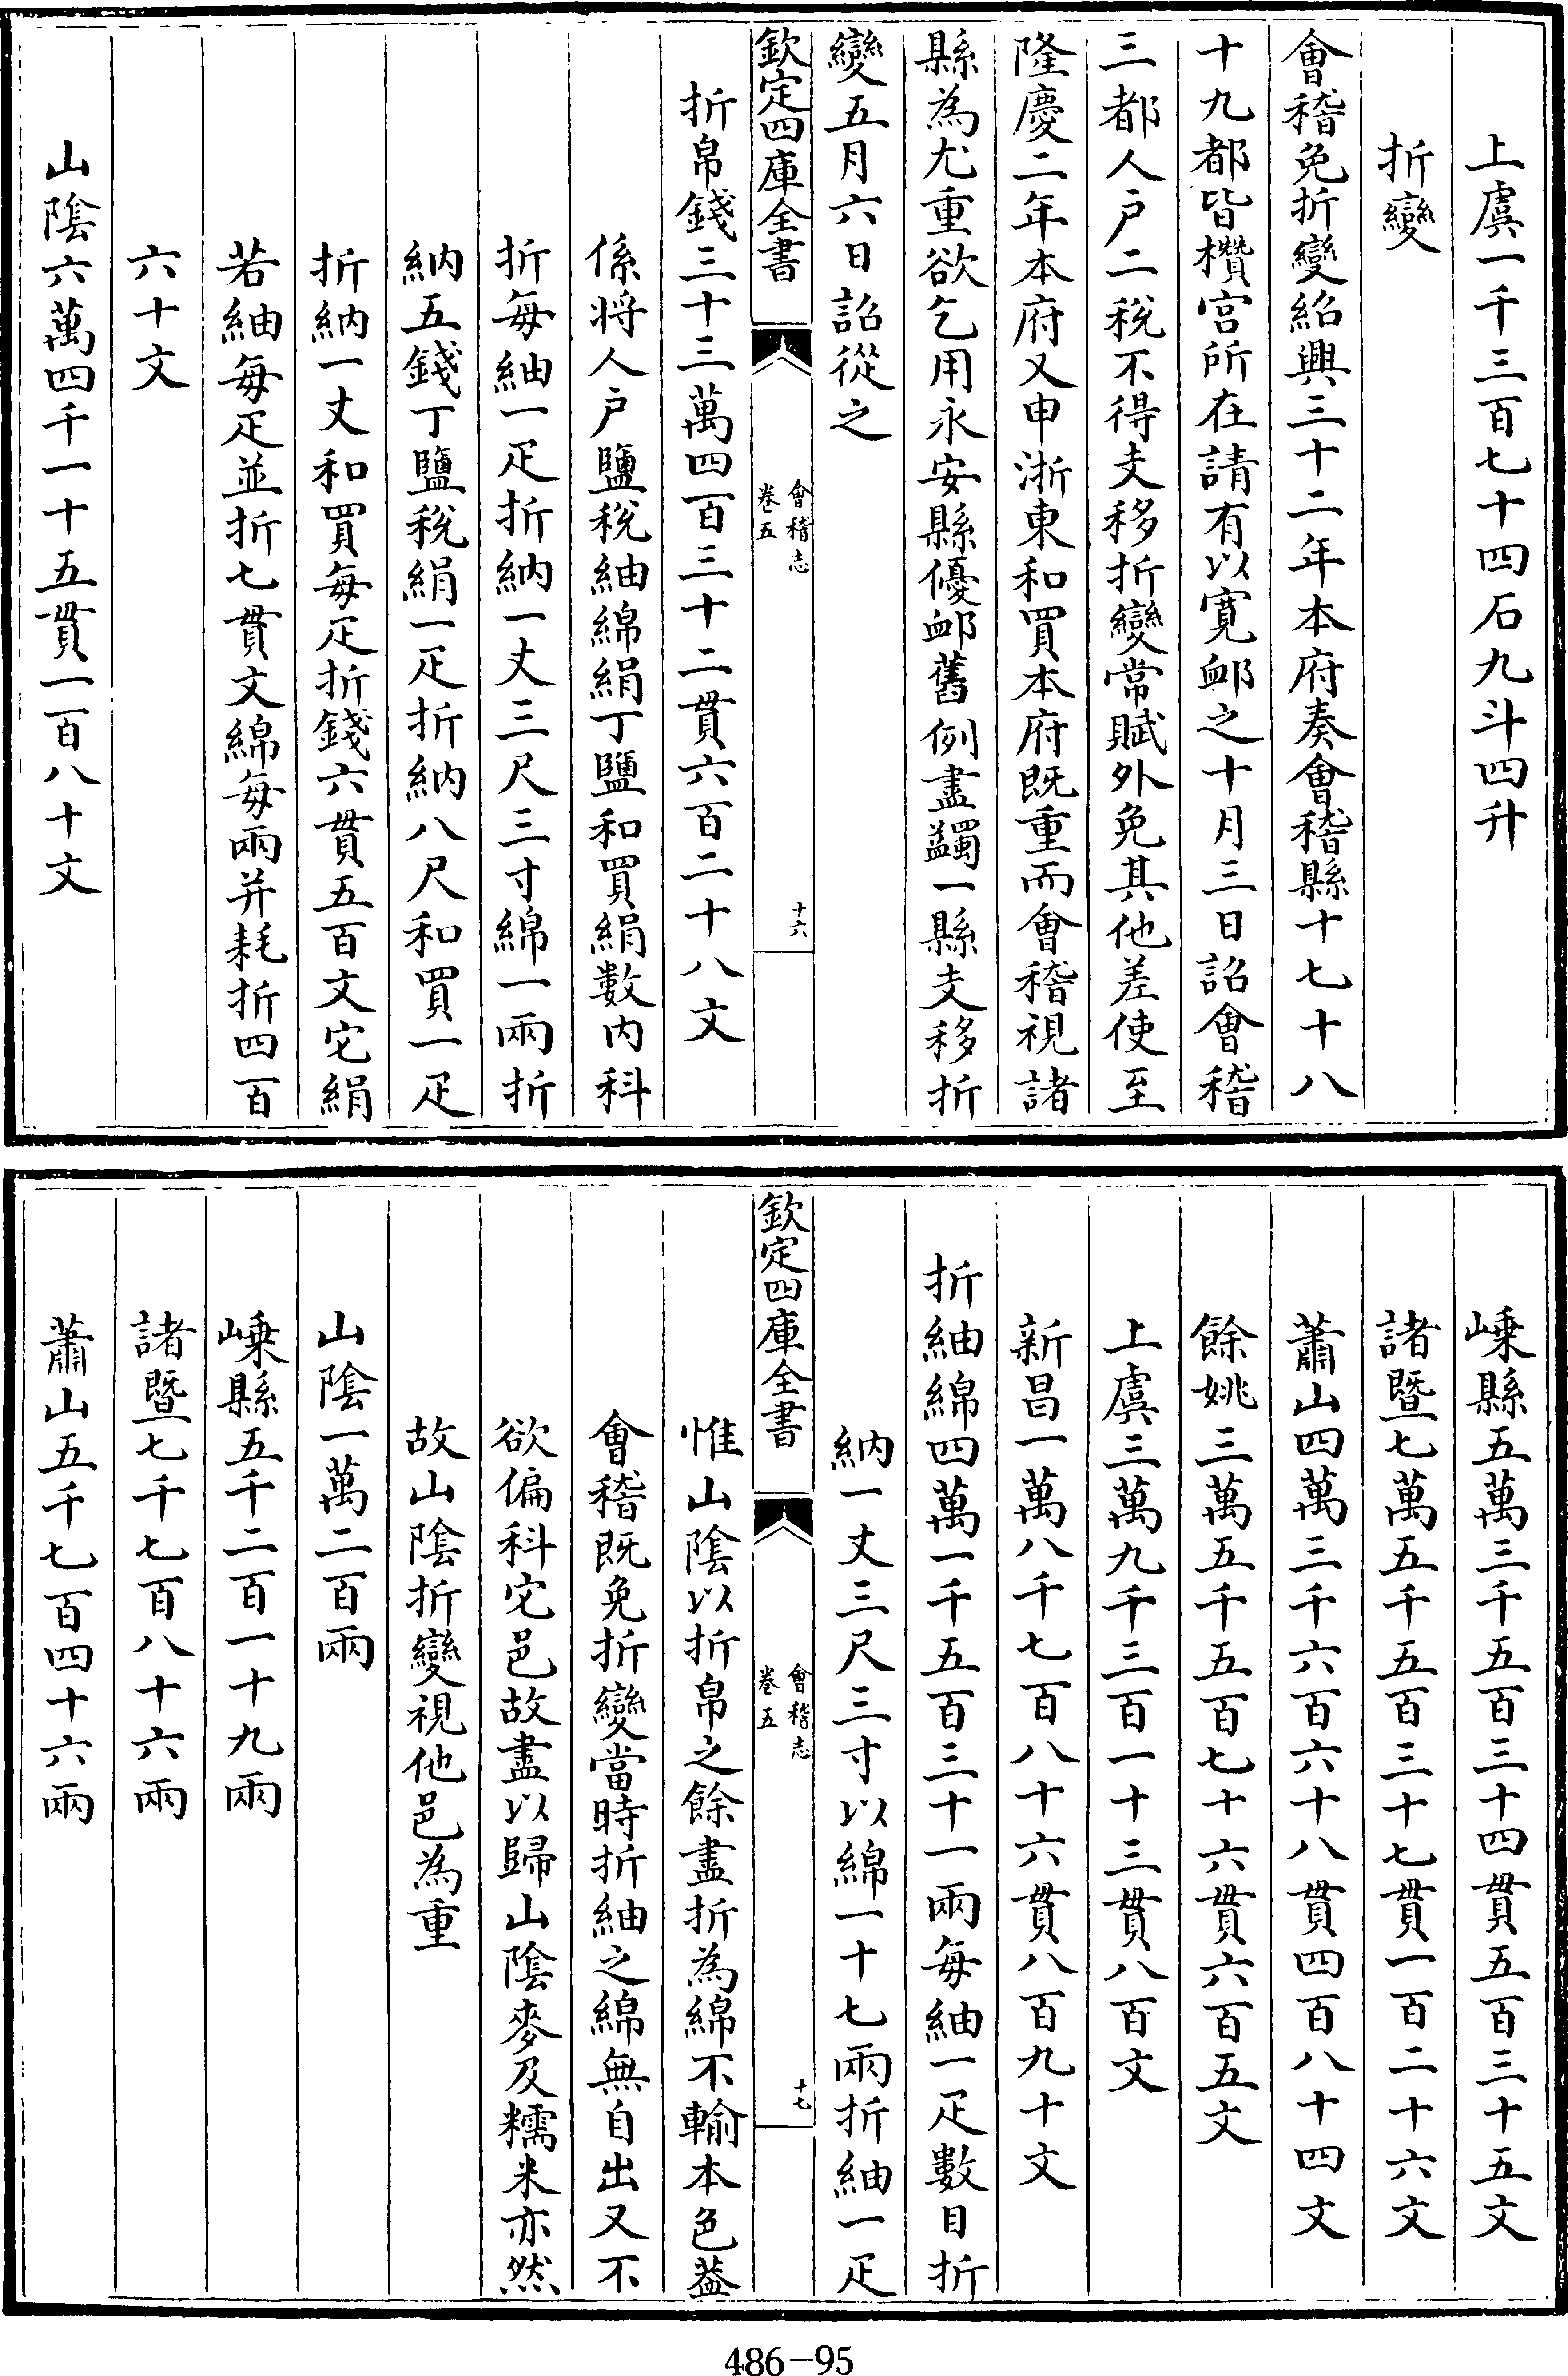 上虞一千三百七十四石九斗四升
折變
會稽免折變紹興三十二年本府奏會稽縣十七十八
十九都皆欑宫所在請有以寛卹之十月三日詔會稽
三都人户二稅不得支移折變常賦外免其他差使至
隆慶二年本府又申浙東和買本府既重而會稽視諸
縣為尤重欲乞用永安縣優卹舊例盡蠲一縣支移折
變五月六日詔從之
欽定四庫全書
會稽志
卷五
十六
折帛錢三十三萬四百三十二貫六百二十八文
係将人户鹽稅紬綿絹丁鹽和買絹數内科
折每紬一疋折納一丈三尺三寸綿一兩折
納五錢丁鹽稅絹一疋折納八尺和買一疋
折納一丈和買每疋折錢六貫五百文它絹
若紬每疋並折七貫文綿每兩并耗折四百
六十文
山隂六萬四千一十五貫一百八十文
嵊縣五萬三千五百三十四貫五百三十五文
諸暨七萬五千五百三十七貫一百二十六文
蕭山四萬三千六百六十八貫四百八十四文
餘姚三萬五千五百七十六貫六百五文
上虞三萬九千三百一十三貫八百文
新昌一萬八千七百八十六貫八百九十文
折紬綿四萬一千五百三十一兩每紬一疋數目折
納一丈三尺三寸以綿一十七兩折紬一疋
欽定四庫全書
會稽志
卷五
十七
惟山隂以折帛之餘盡折為綿不輸本色葢
會稽既免折變當時折紬之綿無自出又不
欲偏科它邑故盡以歸山隂麥及糯米亦然
故山隂折變視他邑為重
山隂一萬二百兩
嵊縣五千二百一十九兩
諸暨七千七百八十六兩
蕭山五千七百四十六兩
486-95